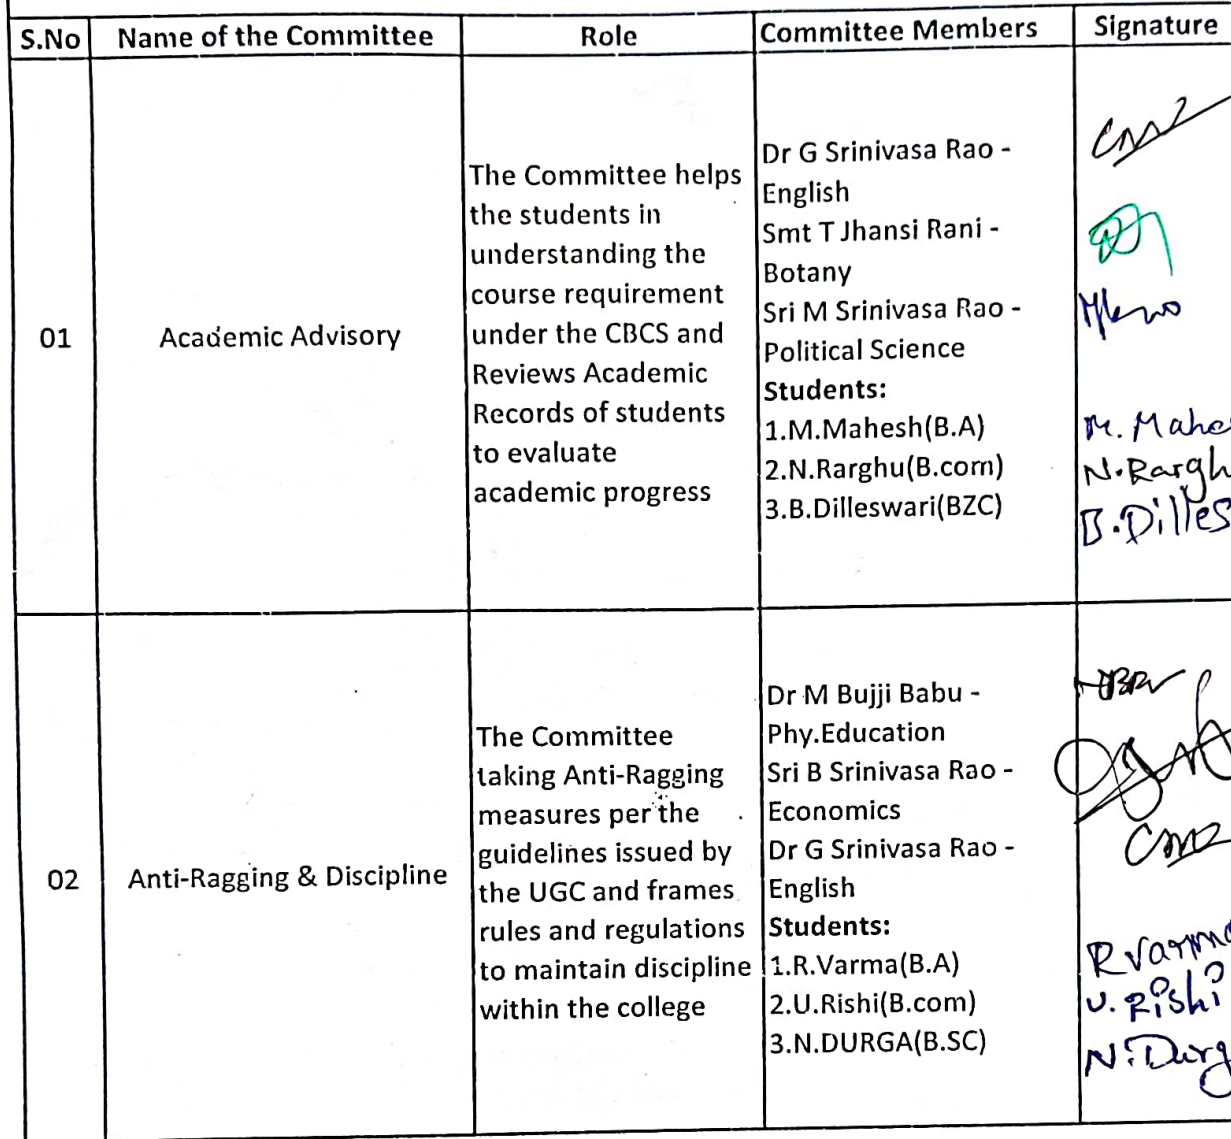 S.No Name of the Committee Role Committee Members Signature
01
Academic Advisory
The Committee helps
the students in
understanding the
course requirement
under the CBCS and
Reviews Academic
Records of students
to evaluate
academic progress
Dr G Srinivasa Rao -
English
Smt T Jhansi Rani -
Botany
Sri M Srinivasa Rao -
Political Science
Students:
1.M.Mahesh(B.A)
2.N.Rarghu(B.com)
3.B.Dilleswari(BZC)
M. Mahe
N.Rargh
B.Dilles
02
Anti-Ragging & Discipline
The Committee
taking Anti-Ragging
measures per the
guidelines issued by
the UGC and frames
rules and regulations
to maintain discipline
within the college
Dr M Bujji Babu -
Phy.Education
Sri B Srinivasa Rao -
Economics
Dr G Srinivasa Rao -
English
Students:
1.R.Varma(B.A)
2.U.Rishi(B.com)
3.N.DURGA(B.SC)
R varma
U. Rishi
N.Durg